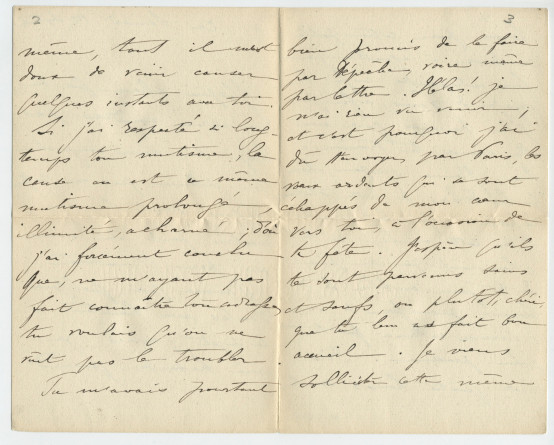 2
même, tant il m'est
doux de venir causer
quelques instants avec toi.
Si j'ai respecté si long-
temps ton mutisme, la
cause en est ce même
mutisme prolongé,
illimité, acharné ; d'où
j'ai forcément conclu
que, ne m'ayant pas
fait connaître ton adresse,
tu voulais qu'on ne
vînt pas le troubler.
Tu m'avais pourtant
3
bien promis de le faire
par dépêche, voire même
par lettre. Hélas! je
n'ai rien vu venir ;
et c'est pourquoi j'ai
dû t'envoyer, par Paris, les
vœux ardents qui se sont
échappés de mon cœur
vers toi, à l'occasion de
ta fête. J'espère qu'ils
te sont parvenus sains
et saufs, ou plutôt, chéri,
que tu leur as fait bon
accueil. Je viens
solliciter cette même